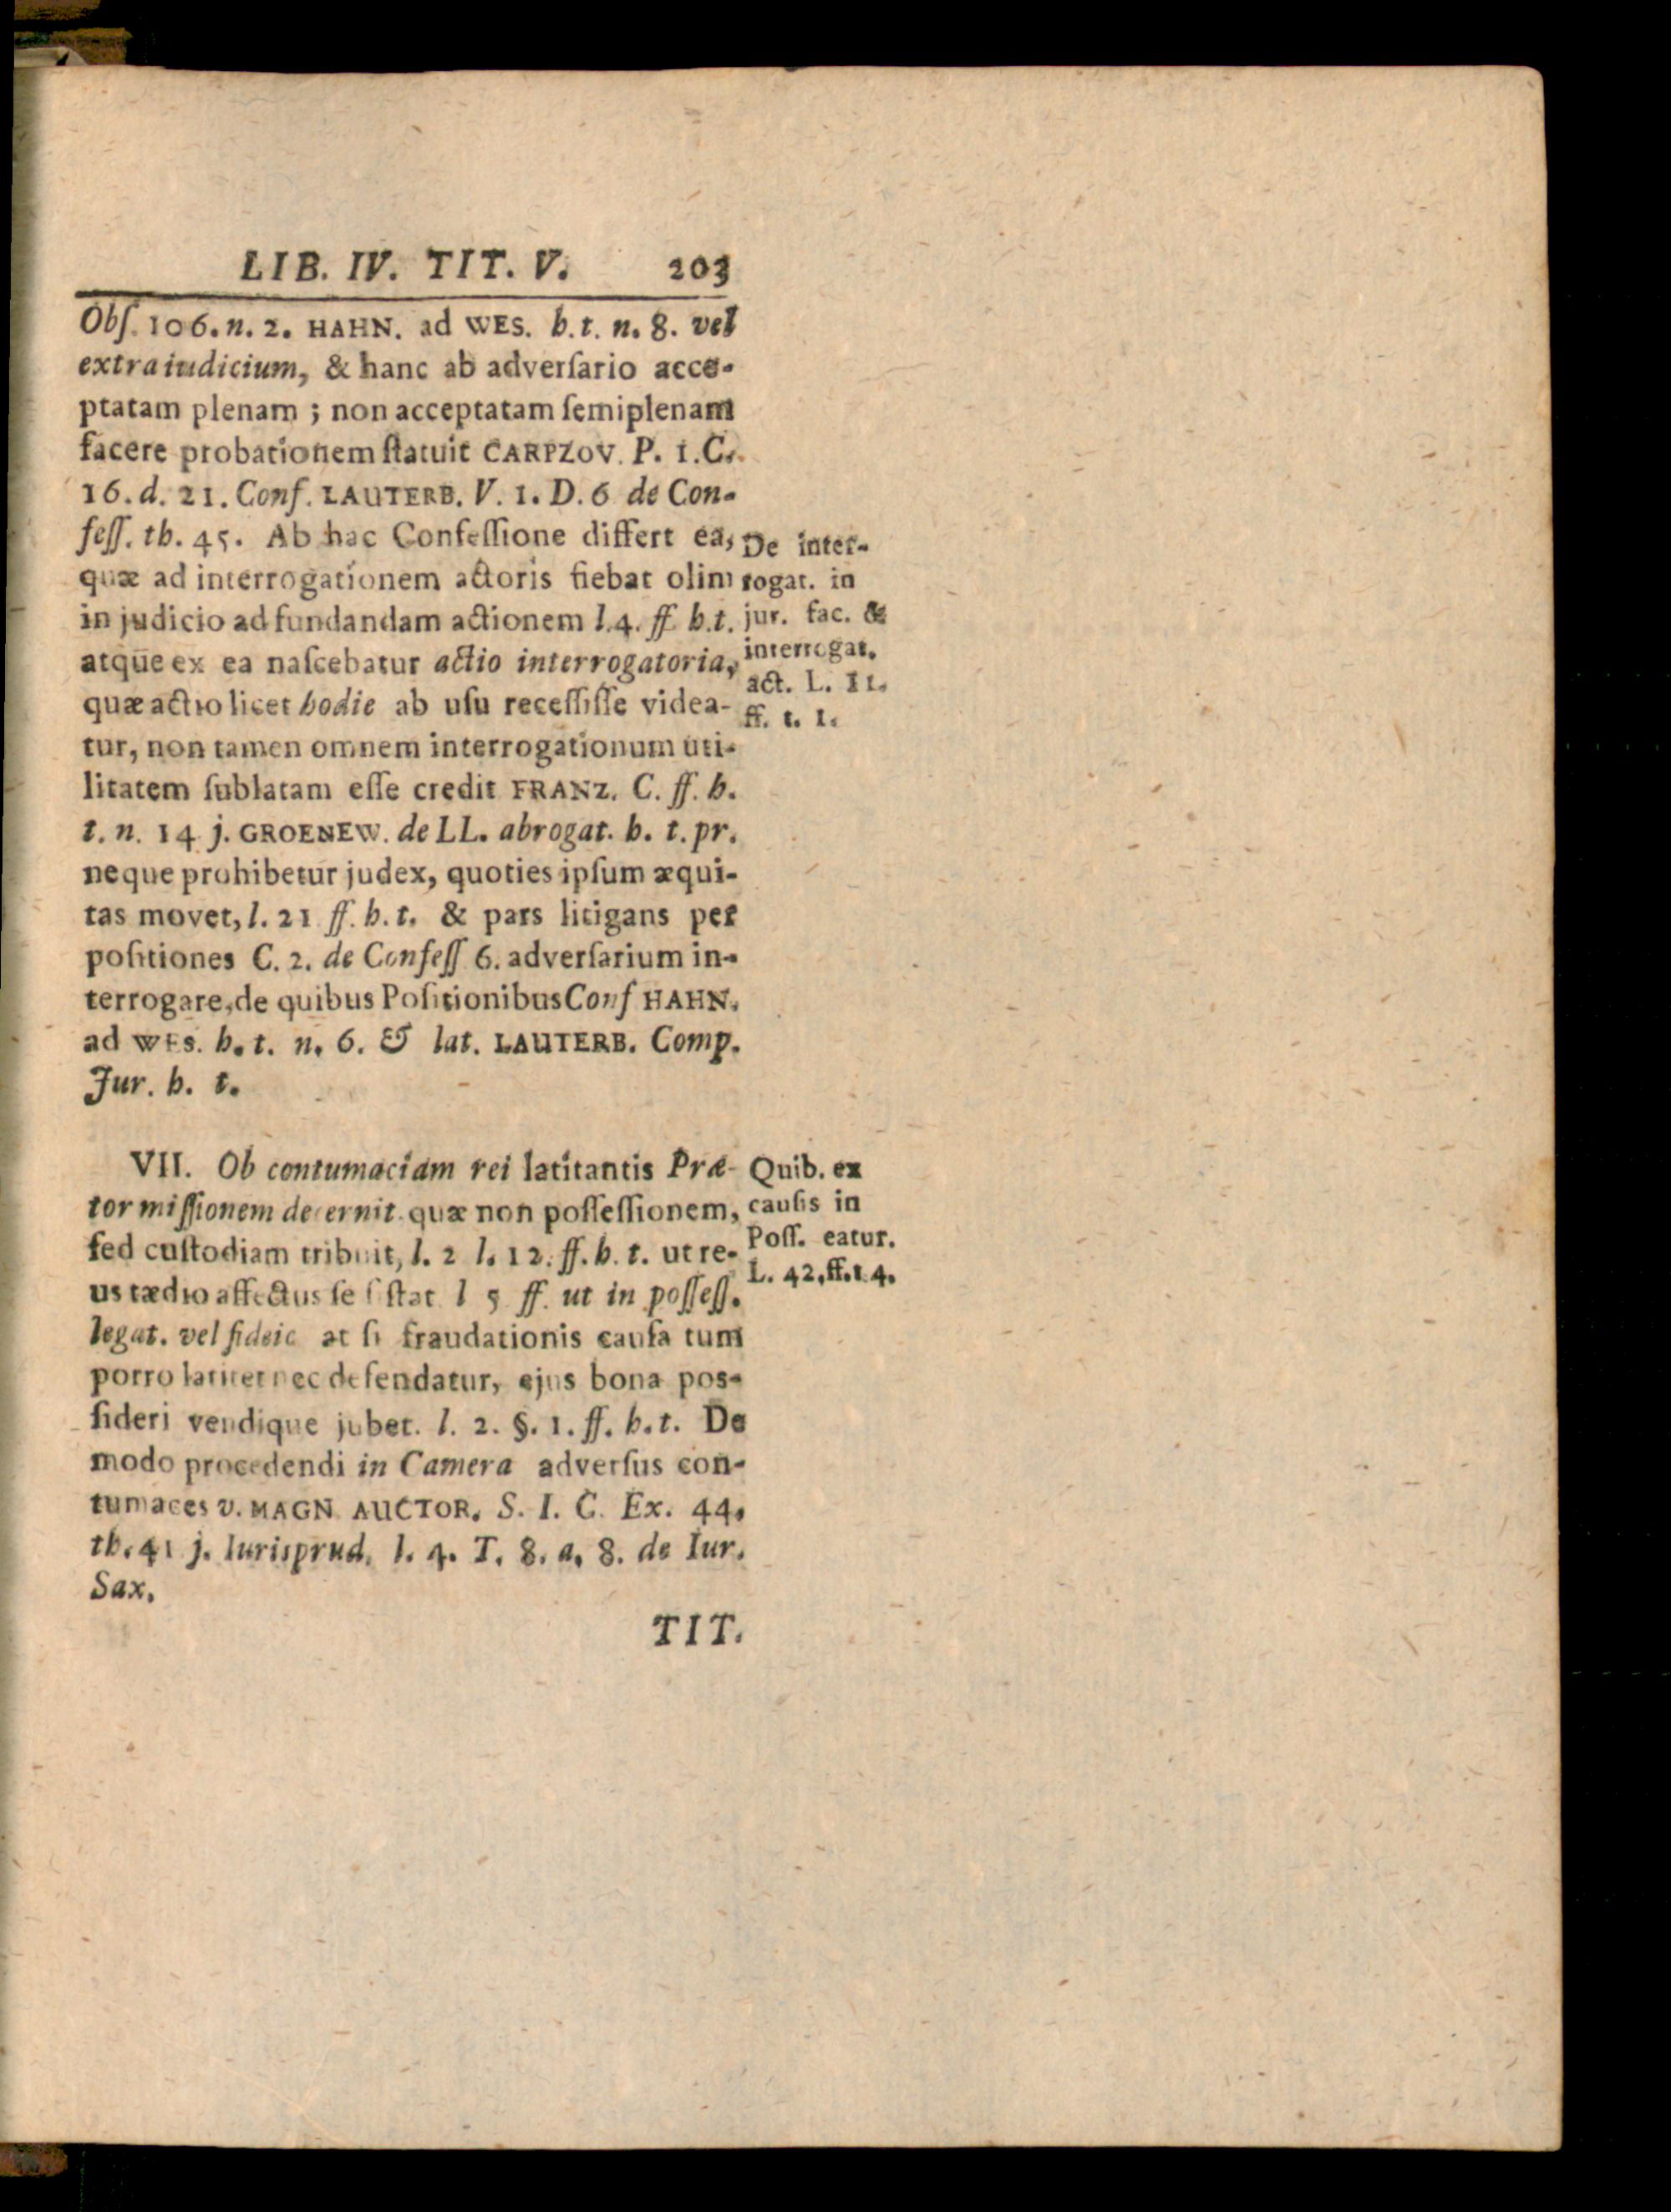 LIB. IV. TIT. V. 203
Obſ. 106. n. 2. HAHN. ad WES. h. t. n. 8. vel
extra iudicium, & hanc ab adverſario acce-
ptatam plenam ; non acceptatam ſemiplenam
facere probationem ſtatuit CARPZOV. P. 1. C.
16. d. 21. Conf. LAUTERB. V. 1. D. 6 de Con-
feſſ. th. 45. Ab hac Confeſſione differt ea,
quæ ad interrogationem actoris fiebat olim
in judicio ad fundandam actionem l. 4. ff. h. t.
atque ex ea naſcebatur actio interrogatoria,
quæ actio licet hodie ab uſu receſſiſſe videa-
tur, non tamen omnem interrogationum uti-
litatem ſublatam eſſe credit FRANZ. C. ff. h.
t. n. 14 j. GROENEW. de LL. abrogat. h. t. pr.
neque prohibetur judex, quoties ipſum æqui-
tas movet, l. 21 ff. h. t. & pars litigans per
poſitiones C. 2. de Confeſſ 6. adverſarium in-
terrogare, de quibus Poſitionibus Conf HAHN.
ad WES. h. t. n. 6. & lat. LAUTERB. Comp.
Jur. h. t.
De inter-
rogat. in
jur. fac. &
interrogat.
act. L. 11.
ff. t. 1.
VII. Ob contumaciam rei latitantis Præ-
tor miſſionem decernit quæ non poſſeſſionem,
ſed cuſtodiam tribuit, l. 2 l. 12. ff. h. t. ut re-
us tædio affectus ſe ſiſtat l 5 ff. ut in poſſeſſ.
legat. vel fideic at ſi fraudationis cauſa tum
porro latitet nec defendatur, ejus bona pos-
ſideri vendique jubet. l. 2. §. 1. ff. h. t. De
modo procedendi in Camera adverſus con-
tumaces v. MAGN AUCTOR. S. I. C. Ex. 44.
th. 41 j. Iurisprud. l. 4. T. 8. a. 8. de Iur.
Sax.
Quib. ex
cauſis in
Poſſ. eatur.
L. 42. ff. t. 4.
TIT.